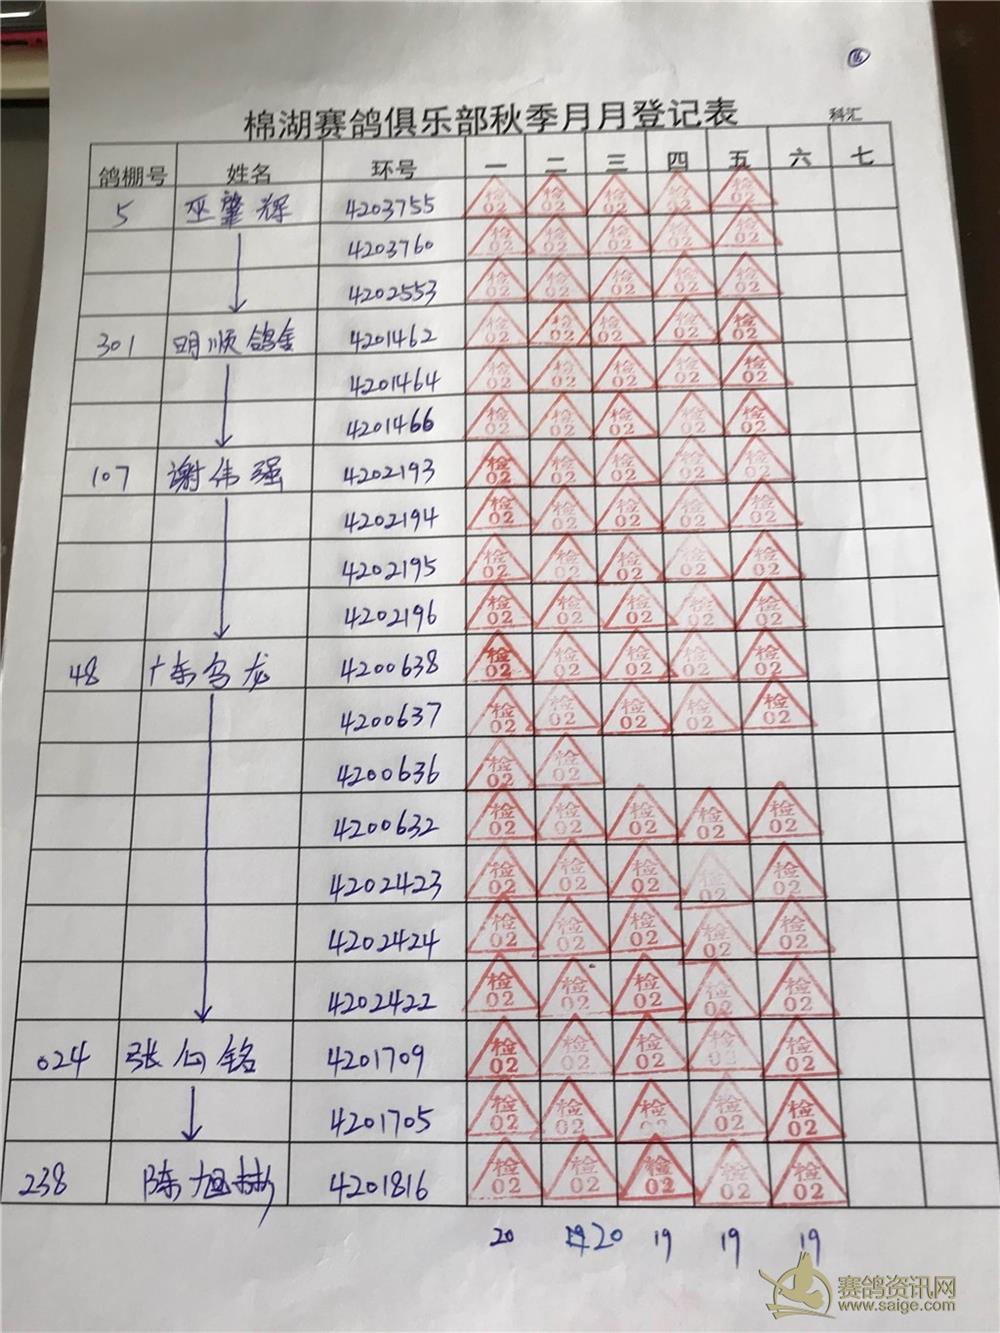 16
棉湖赛鸽俱乐部秋季月月登记表 科汇
鸽棚号 姓名 环号 一 二 三 四 五 六 七
5 巫肇辉 4203755 检02 检02 检02 检02 检02
4203760 检02 检02 检02 检02 检02
4202553 检02 检02 检02 检02 检02
301 明顺鸽舍 4201462 检02 检02 检02 检02 检02
4201464 检02 检02 检02 检02 检02
4201466 检02 检02 检02 检02 检02
107 谢伟强 4202193 检02 检02 检02 检02 检02
4202194 检02 检02 检02 检02 检02
4202195 检02 检02 检02 检02 检02
4202196 检02 检02 检02 检02 检02
48 广东乌龙 4200638 检02 检02 检02 检02 检02
4200637 检02 检02 检02 检02 检02
4200636 检02 检02
4200632 检02 检02 检02 检02 检02
4202423 检02 检02 检02 检02 检02
4202424 检02 检02 检02 检02 检02
4202422 检02 检02 检02 检02 检02
024 张 铭 4201709 检02 检02 检02 检02 检02
4201705 检02 检02 检02 检02 检02
238 陈旭彬 4201816 检02 检02 检02 检02 检02
20 20 19 19 19
赛鸽资讯网
www.saige.com